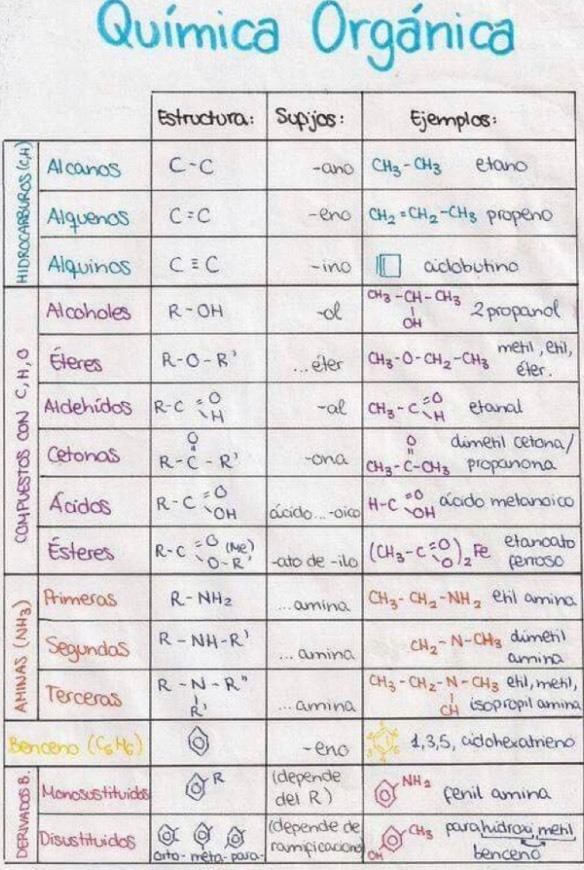 Química Orgánica
Estructura: Sufijos: Ejemplos:
HIDROCARBUROS (C,H)
Alcanos C-C -ano CH3-CH3 etano
Alquenos C=C -eno CH2=CH2-CH3 propeno
Alquinos C≡C -ino ciclobutino
COMPUESTOS CON C, H, O
Alcoholes R-OH -ol CH3-CH-CH3 2 propanol
OH
Éteres R-O-R' ...éter CH3-O-CH2-CH3 metil, etil,
éter.
Aldehídos R-C =O -al CH3-C =O etanal
\H \H
Cetonas O -ona O dimetil cetona/
R-C-R' CH3-C-CH3 propanona
Ácidos R-C =O ácido...-oico H-C =O ácido metanoico
\OH \OH
Ésteres R-C =O (Me) -ato de -ilo (CH3-C =O)2Fe etanoato
\O-R' \O ferroso
AMINAS (NH3)
Primeras R-NH2 ...amina CH3-CH2-NH2 etil amina
Segundas R-NH-R' ...amina CH2-N-CH3 dimetil
amina
Terceras R-N-R" ...amina CH3-CH2-N-CH3 etil, metil,
R' CH isopropil amina
Benceno (C6H6) -eno 1,3,5, ciclohexatrieno
DERIVADOS B.
Monosustituidos R (depende NH2 fenil amina
del R)
Disustituidos (depende de CH3 para hidroxi, metil
orto- meta- para- ramificacion) OH benceno